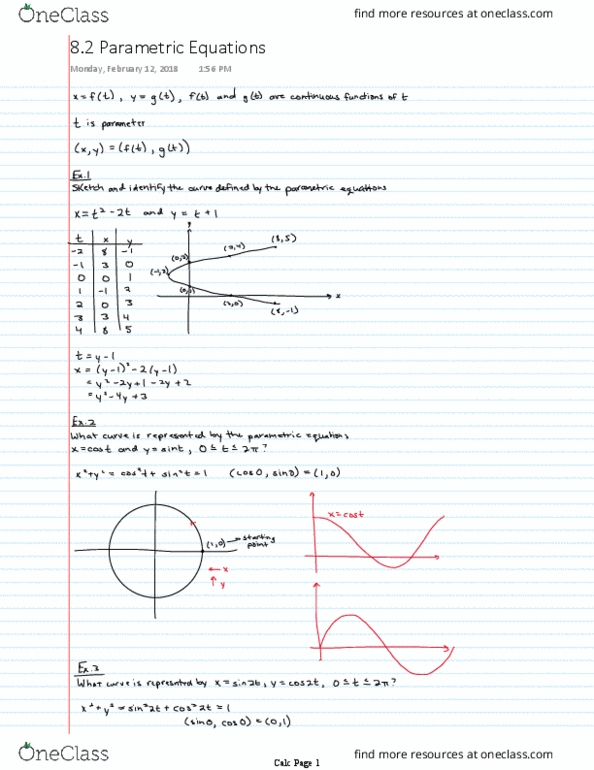 OneClass
find more resources at oneclass.com
8.2 Parametric Equations
Monday, February 12, 2018 1:56 PM
x = f(t), y = g(t), f(t) and g(t) are continuous functions of t
t is parameter
(x,y) = (f(t), g(t))
Ex.1
Sketch and identify the curve defined by the parametric equations
x = t² - 2t and y = t + 1
t x y
-2 8 -1
-1 3 0
0 0 1
1 -1 2
2 0 3
3 3 4
4 8 5
y
(8,5)
(3,4)
(0,3)
(-1,2)
(0,1)
x
(3,0)
(8,-1)
t = y - 1
x = (y-1)² - 2(y-1)
= y² - 2y + 1 - 2y + 2
= y² - 4y + 3
Ex.2
What curve is represented by the parametric equations
x = cost and y = sint, 0 ≤ t ≤ 2π?
x² + y² = cos²t + sin²t = 1 (cos0, sin0) = (1,0)
x = cost
(1,0) → starting point
← x
↑ y
Ex.3
What curve is represnted by x = sin2t, y = cos2t, 0 ≤ t ≤ 2π?
x² + y² = sin²2t + cos²2t = 1
(sin0, cos0) = (0,1)
OneClass
Calc Page 1
find more resources at oneclass.com